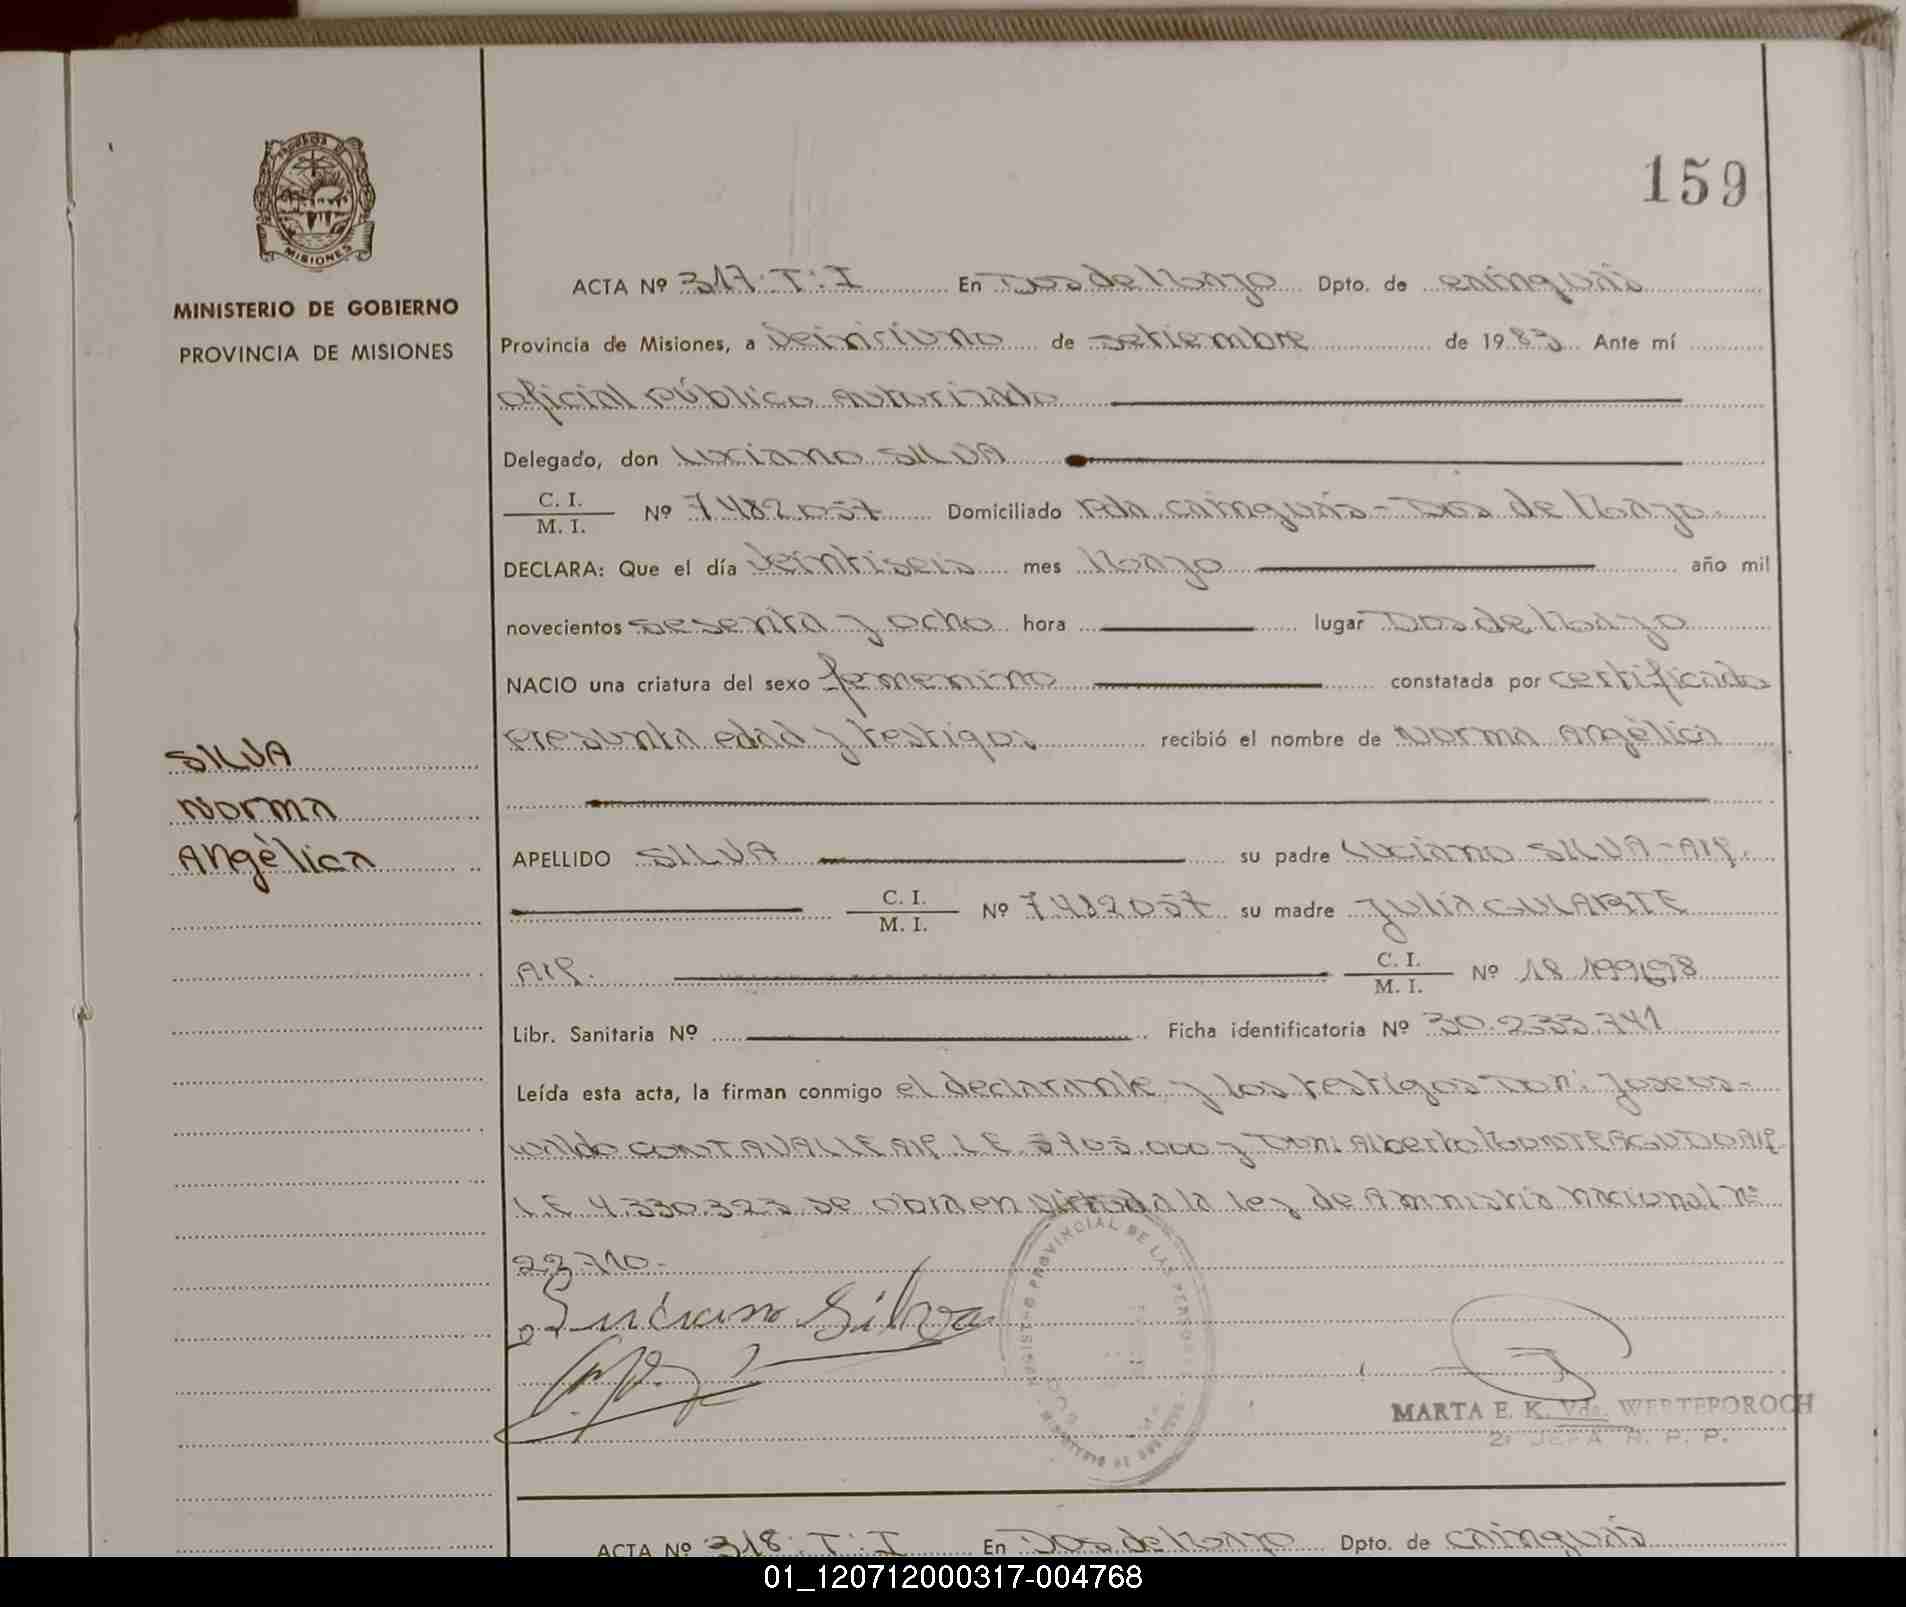 159
MISIONES
MINISTERIO DE GOBIERNO
PROVINCIA DE MISIONES
ACTA Nº 317. T: I En Dos de Mayo Dpto. de cainguás
Provincia de Misiones, a veintiuno de setiembre de 1983 Ante mí
oficial público autorizado
Delegado, don Luciano SILVA
C. I.
M. I. Nº 7482057 Domiciliado Pdo cainguás - Dos de Mayo
DECLARA: Que el día veintiseis mes Mayo año mil
novecientos sesenta y ocho hora lugar Dos de Mayo
NACIO una criatura del sexo femenino constatada por certificado
presunta edad y testigos recibió el nombre de Norma Angélica
SILVA
Norma
Angélica
APELLIDO SILVA su padre Luciano SILVA - Arg.
C. I.
M. I. Nº 7.482057 su madre Julia GULARTE
Arg. C. I.
M. I. Nº 18.199698
Libr. Sanitaria Nº Ficha identificatoria Nº 30.233.741
Leída esta acta, la firman conmigo el declarante y los testigos Don: Jose Os-
waldo CONTAVALLE Arg. L.E. y Don: Alberto MONTEAGUDO Arg.
L.E. 4.330.323 se obra en virtud a la ley de Amnistia Nacional Nº
22.710.-
Luciano Silva
REGISTRO PROVINCIAL DE LAS PERSONAS
MARTA E. K. Vda. WERTEPOROCH
R. P. P.
ACTA Nº 318. T: I En Dos de Mayo Dpto. de cainguás
01_120712000317-004768